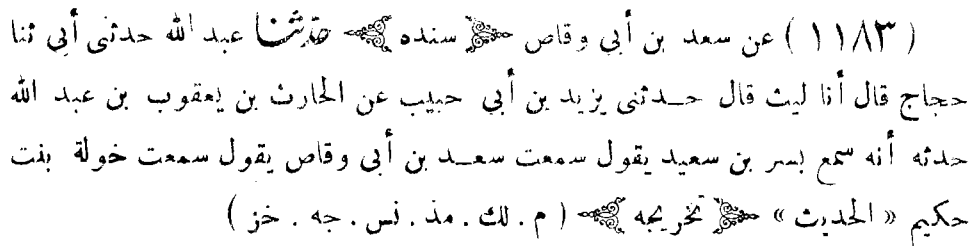 ( ١١٨٣ ) عن سعد بن أبى وقاص ﴿ سنده ﴾ حدثنا عبد الله حدثنى أبى ثنا
حجاج قال أنا ليث قال حـدثنى يزيد بن أبي حبيب عن الحارث بن يعقوب بن عبد الله
حدثه أنه سمع بسر بن سعيد يقول سمعت سعـد بن أبى وقاص يقول سمعت خولة بنت
حكيم « الحديث » ﴿ تخريجه ﴾ ( م . لك . مذ . نس . جه . خز )